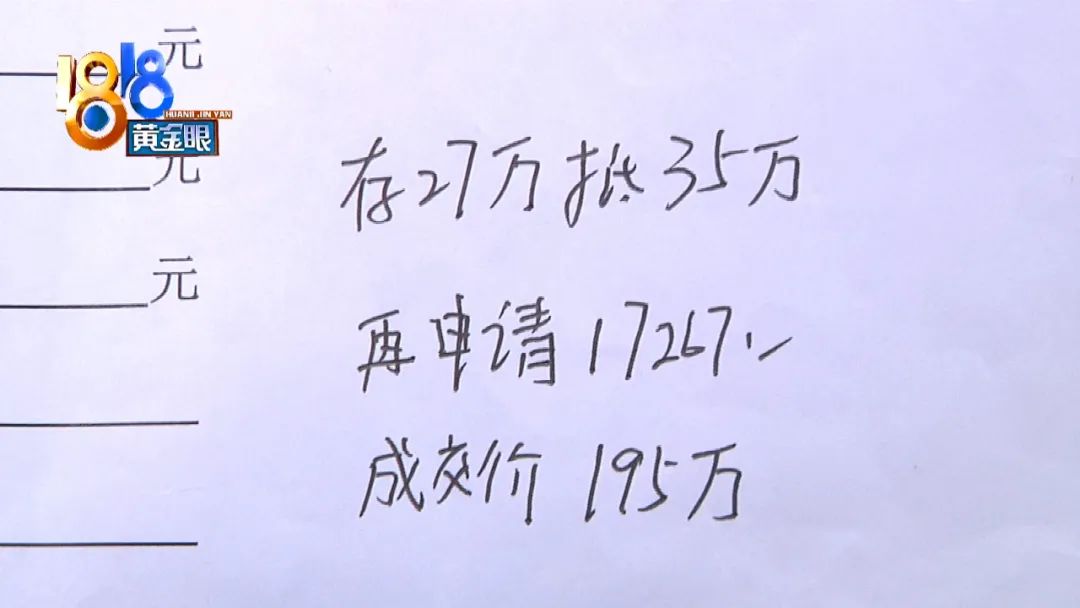 元
1818
HUANG JIN YAN
黄金眼
元
元
存27万抵35万
再申请17267.
成交价195万